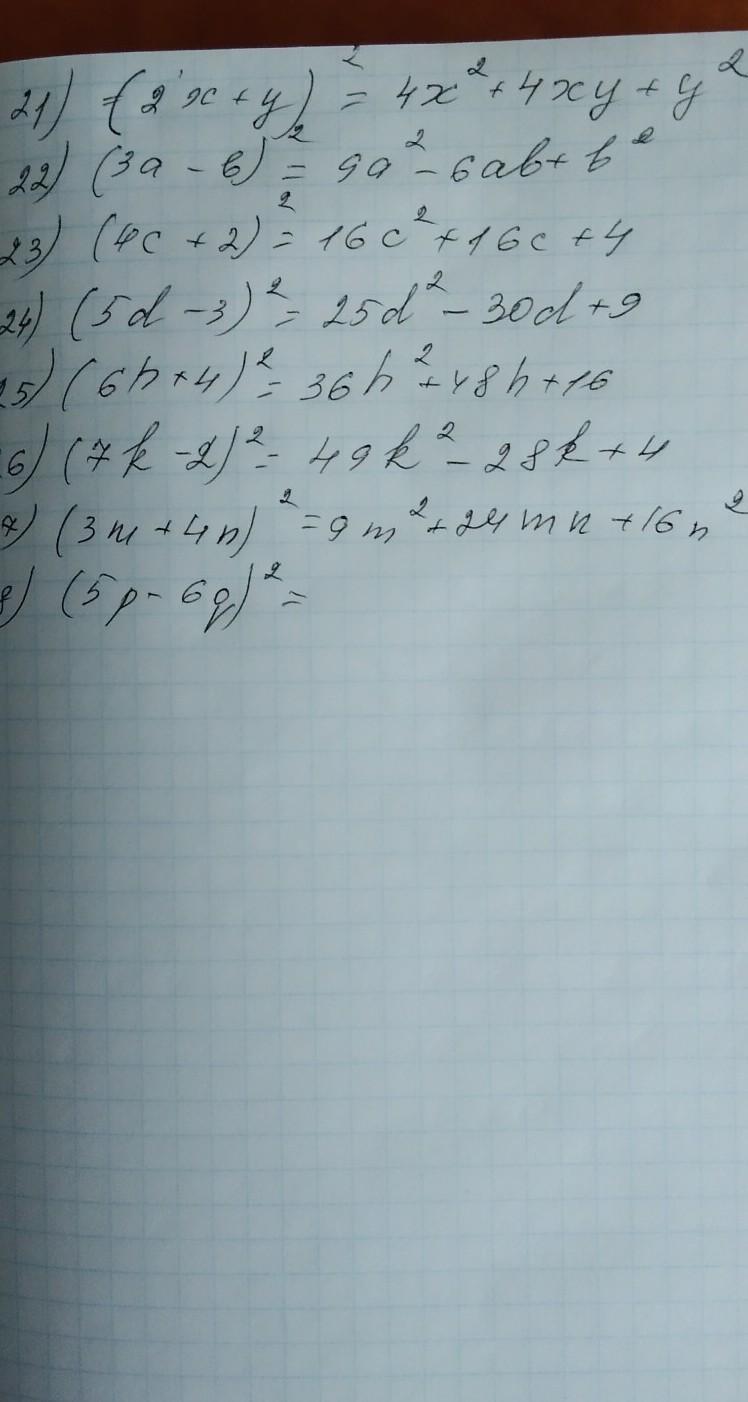 21) (2x + y)² = 4x² + 4xy + y²
22) (3a - b)² = 9a² - 6ab + b²
23) (4c + 2)² = 16c² + 16c + 4
24) (5d - 3)² = 25d² - 30d + 9
5) (6h + 4)² = 36h² + 48h + 16
6) (7k - 2)² = 49k² - 28k + 4
7) (3m + 4n)² = 9m² + 24mn + 16n²
8) (5p - 6q)² =